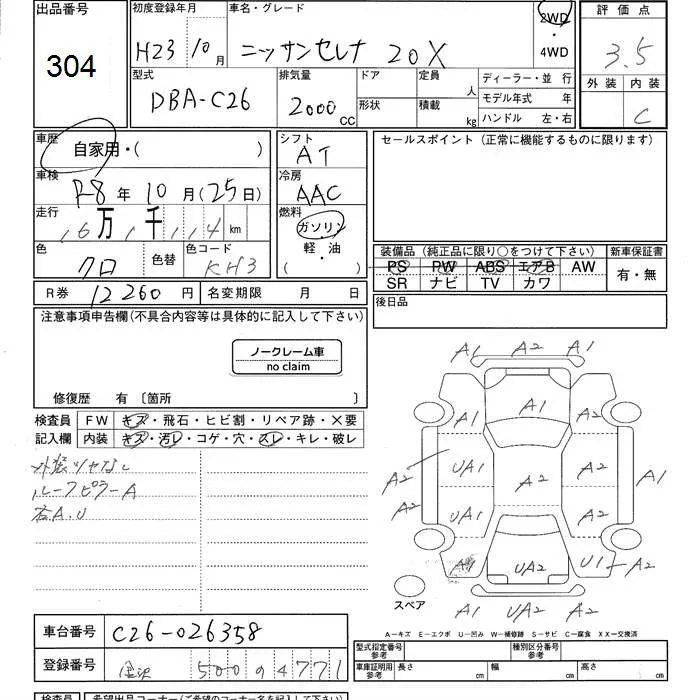 出品番号 初度登録年月 車名・グレード 2WD 評価点
304 H23 10月 ニッサンセレナ 20X ・ 3.5
4WD
型式 排気量 ドア 定員 人 ディーラー・並 行 外装 内装
DBA-C26 2000 CC 形状 積載 kg モデル年式 年 C
ハンドル 左・右
車歴 自家用・( ) シフト AT セールスポイント (正常に機能するものに限ります)
車検 R8年 10月(25日) 冷房 AAC
走行 6万 千 km 燃料 ガソリン
軽・油
( )
色 クロ 色替 色コード KH3 装備品 (純正品に限り○をつけて下さい) 新車保証書
PS PW ABS エアB AW 有・無
SR ナビ TV カワ
R券 12260円 名変期限 月 日 後日品
注意事項申告欄(不具合内容等は具体的に記入して下さい)
ノークレーム車
no claim
修復歴 有 〔箇所 〕
検査員 FW キズ・飛石・ヒビ割・リペア跡・X要
記入欄 内装 キズ・汚レ・コゲ・穴・スレ・キレ・破レ
外装ツヤなし
ルーフピラーA
右A.U
A1 A2 A1
A1
A1 A2
A2 UA1 A2 A2 A1
A2 UA1 A2 A2
UA2 U1 A2
A1 UA2 A2
スペア
A－キズ E－エクボ U－凹み W－補修跡 S－サビ C－腐食 XX－交換済
車台番号 C26-026358
登録番号 金沢 500 4771
型式指定番号 参考 種別区分番号 参考
車庫証明用 参考 長さ cm 幅 cm 高さ cm
検査員 希望出品コーナー(ご希望のコーナー名を記入して下さい)